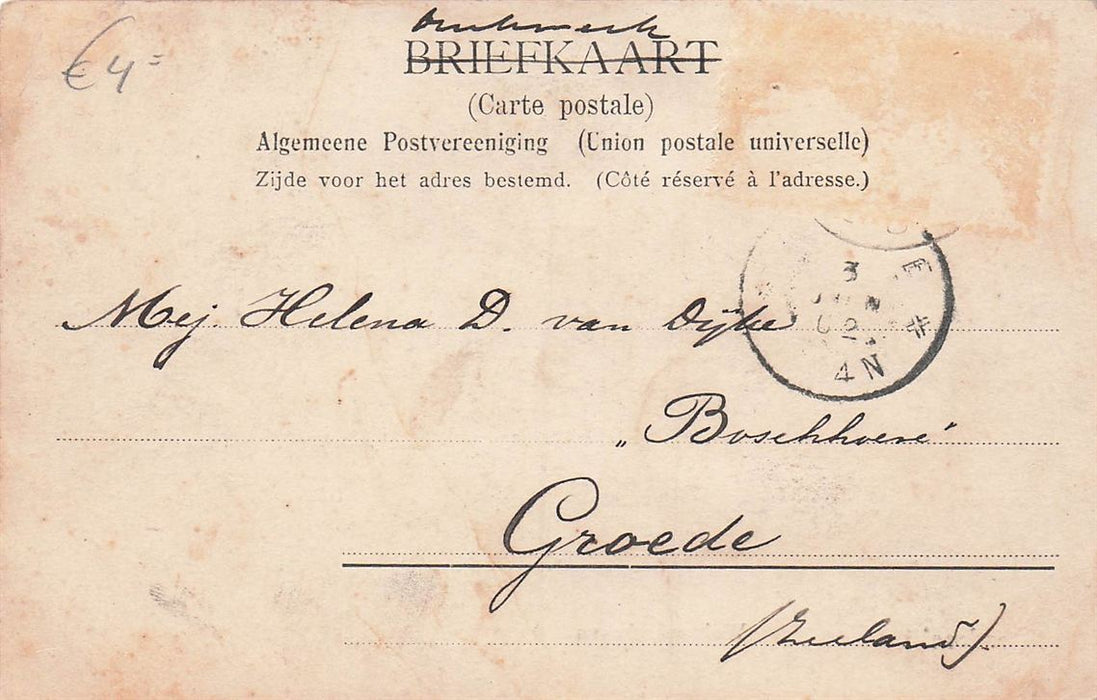 €4=
Drukwerk
BRIEFKAART
(Carte postale)
Algemeene Postvereeniging (Union postale universelle)
Zijde voor het adres bestemd. (Côté réservé à l'adresse.)
E
3
JUN
02
4 N
Mej. Helena D. van Dijke
„Boschhoeve"
Groede
(Zeeland).